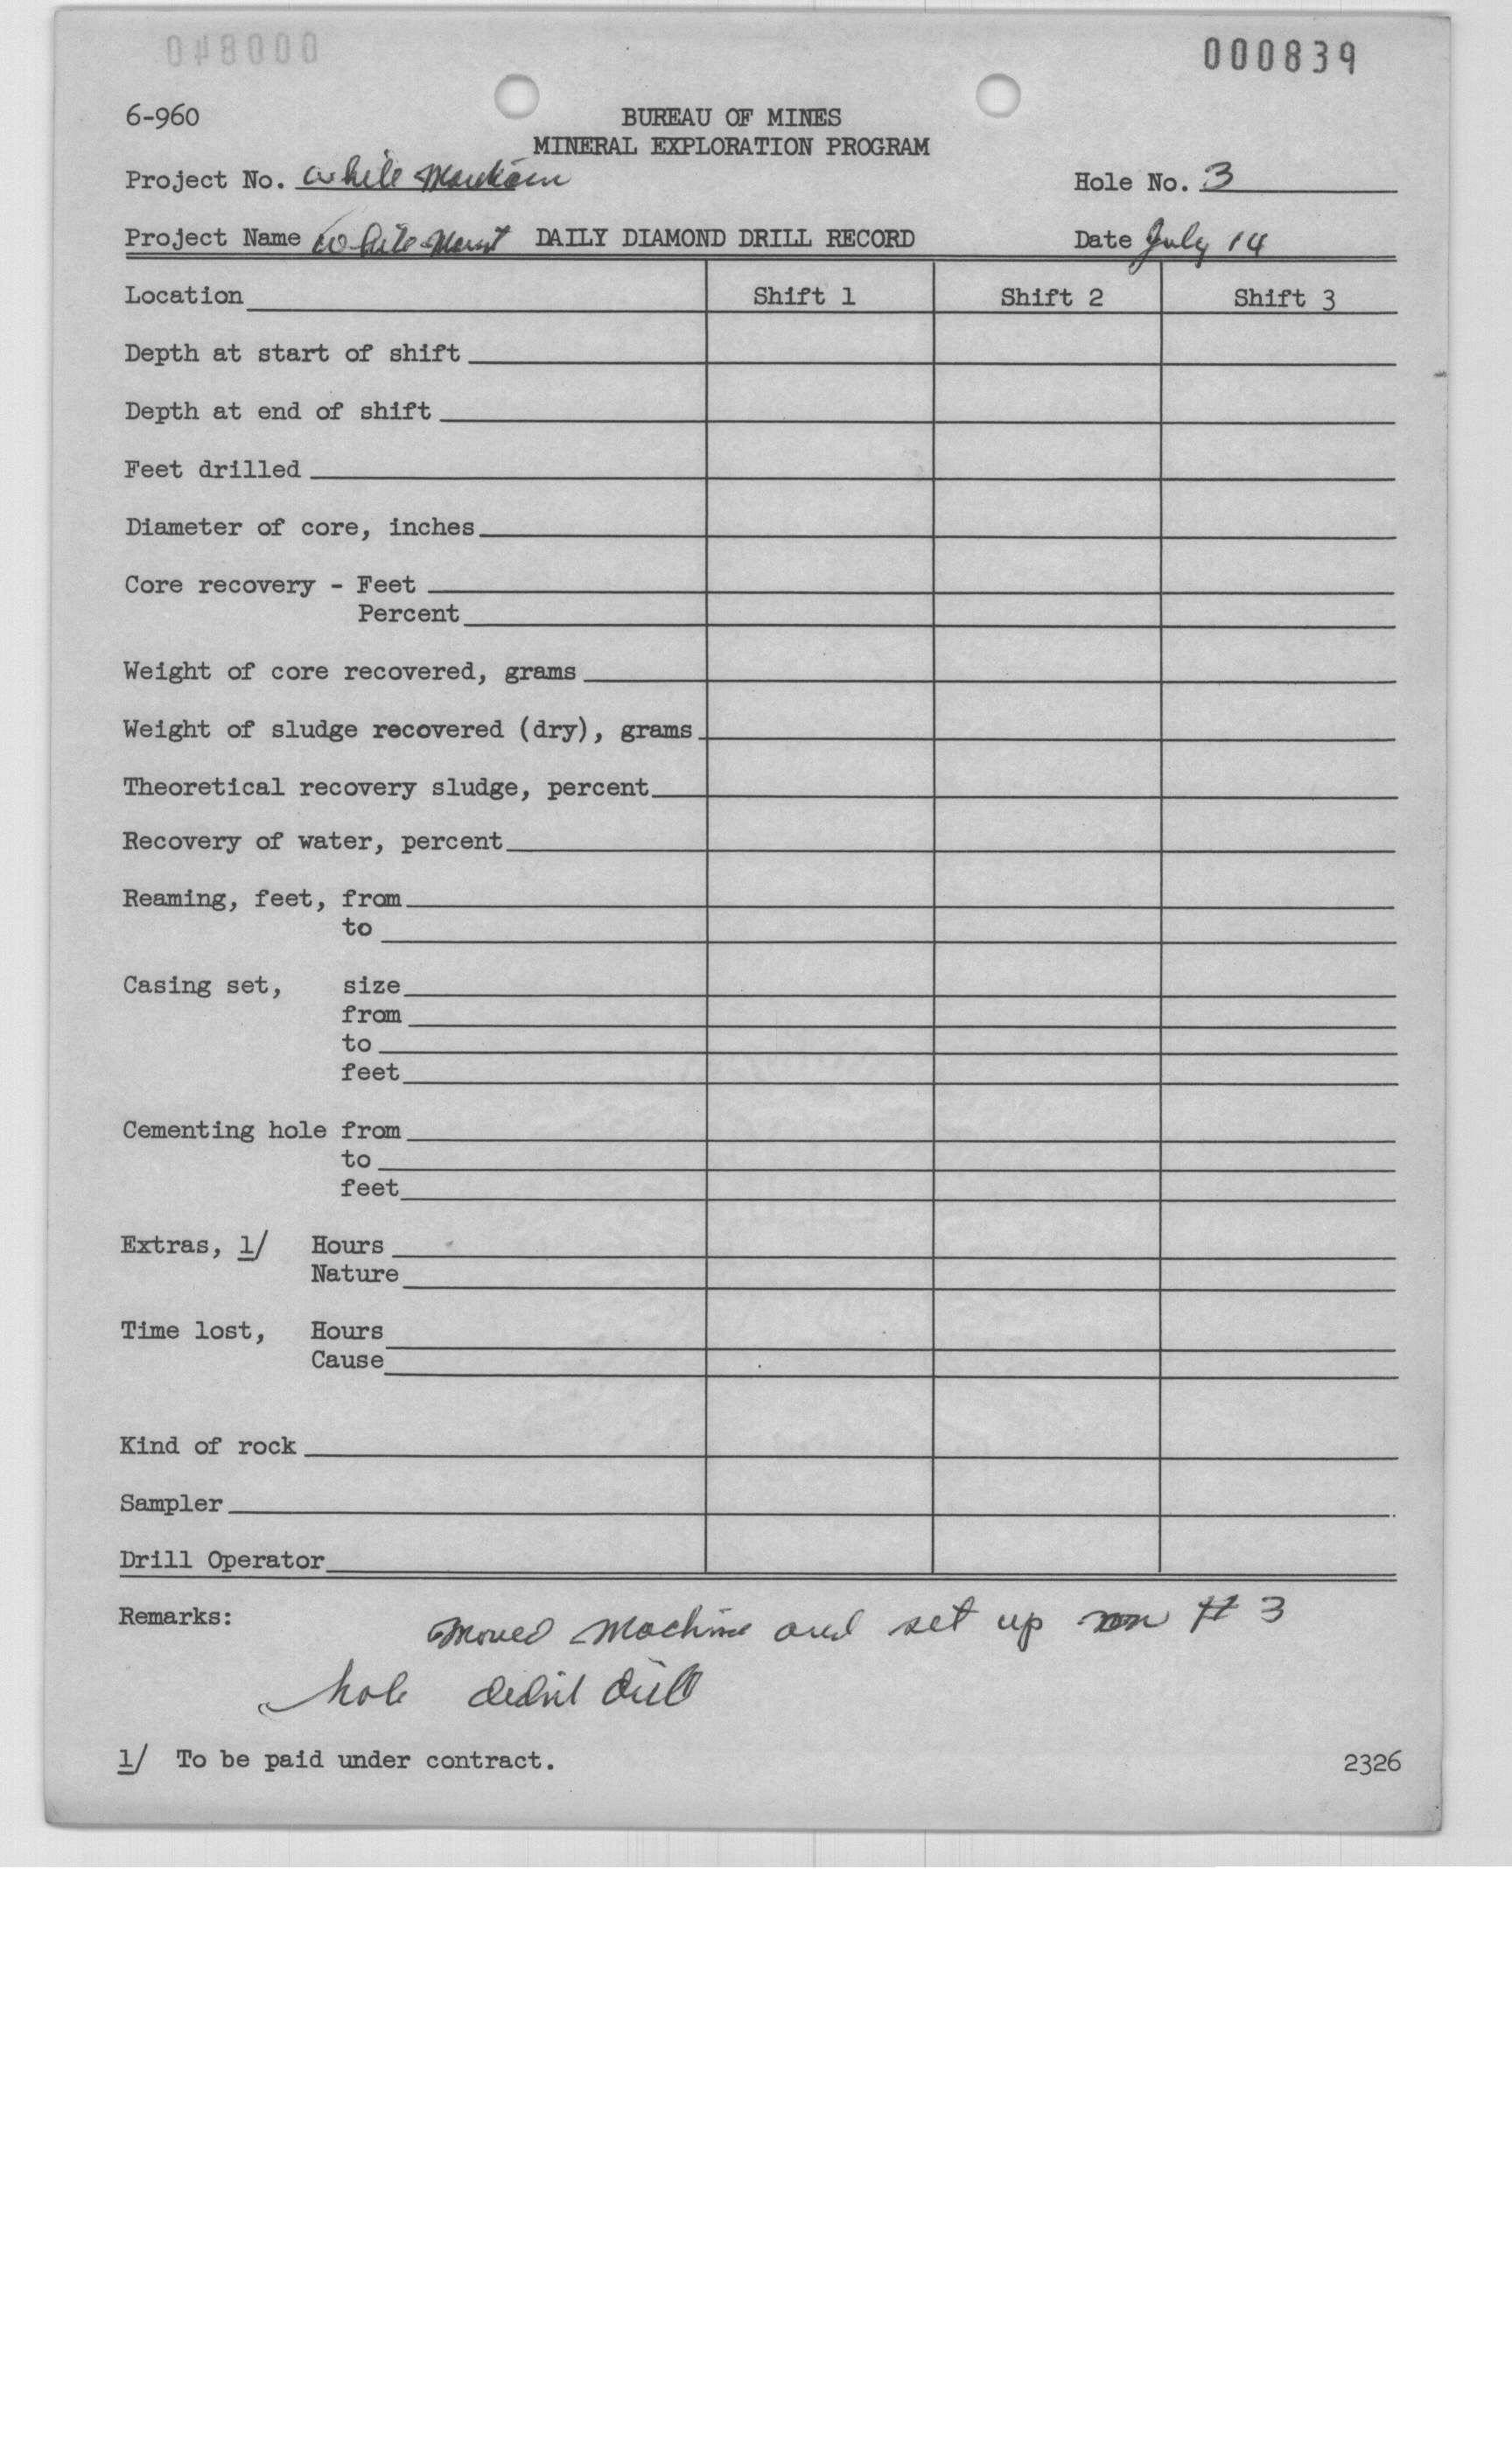 000839
6-960
BUREAU OF MINES
MINERAL EXPLORATION PROGRAM
Project No. White Mountain
Hole No. 3
Project Name White Mount DAILY DIAMOND DRILL RECORD
Date July 14
Location Shift 1 Shift 2 Shift 3
Depth at start of shift
Depth at end of shift
Feet drilled
Diameter of core, inches
Core recovery - Feet
Percent
Weight of core recovered, grams
Weight of sludge recovered (dry), grams
Theoretical recovery sludge, percent
Recovery of water, percent
Reaming, feet, from
to
Casing set, size
from
to
feet
Cementing hole from
to
feet
Extras, 1/ Hours
Nature
Time lost, Hours
Cause
Kind of rock
Sampler
Drill Operator
Remarks: Moved Machine and set up on # 3
hole didnt drill
1/ To be paid under contract.
2326